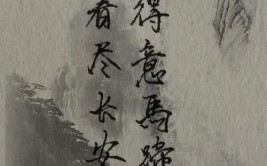 得意馬蹄
看尽长安